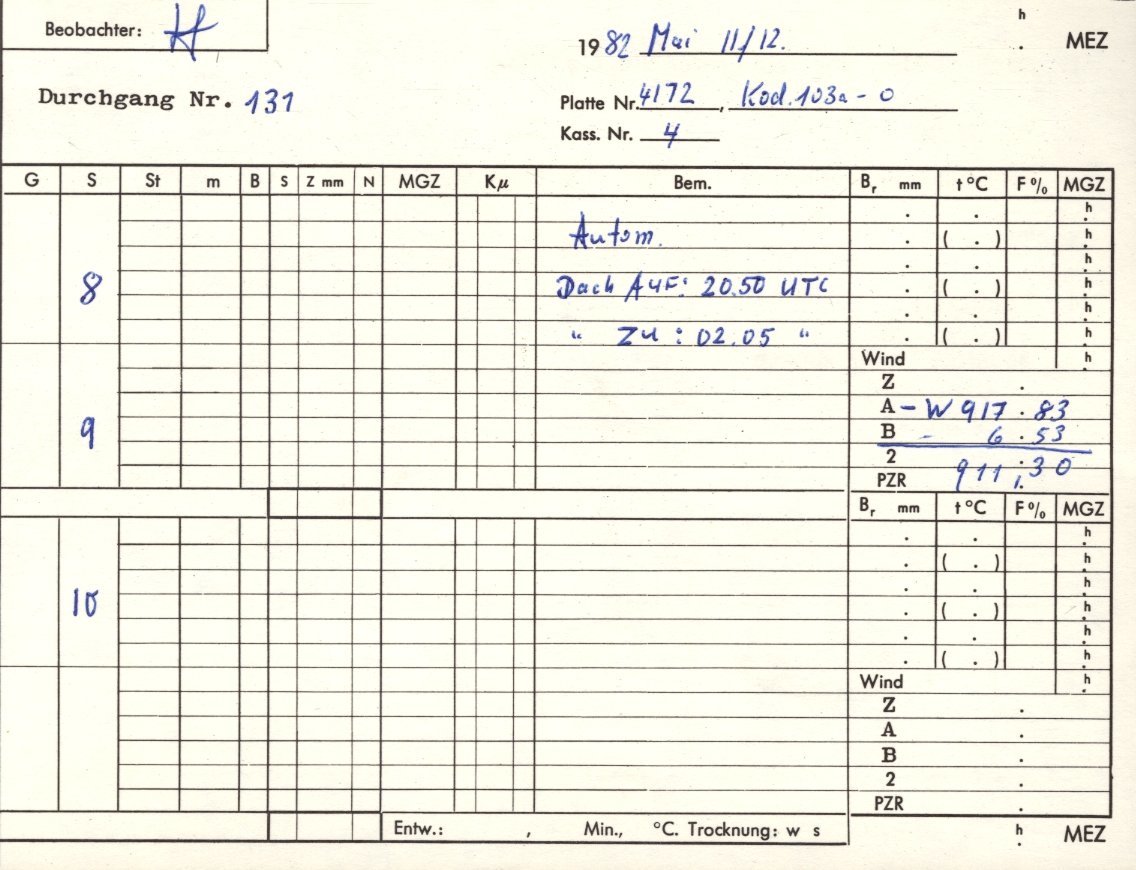 Beobachter: H
h
1982 Mai 11/12. . MEZ
Durchgang Nr. 131
Platte Nr. 4172, Kod. 103a-0
Kass. Nr. 4
G S St m B S Z mm N MGZ Kμ Bem. Br mm t °C F % MGZ
. . h
Autom. . ( . ) h
. . h
8 Dach AUF: 20.50 UTC . ( . ) h
. . h
" ZU : 02.05 " . ( . ) h
Wind h
Z .
A - W 917 . 83
9 B - 6 . 53
2 911 . 30
PZR .
Br mm t °C F % MGZ
. . h
. ( . ) h
. . h
10 . ( . ) h
. . h
. ( . ) h
Wind h
Z .
A .
B .
2 .
PZR .
Entw.: , Min., °C. Trocknung: w s h . MEZ